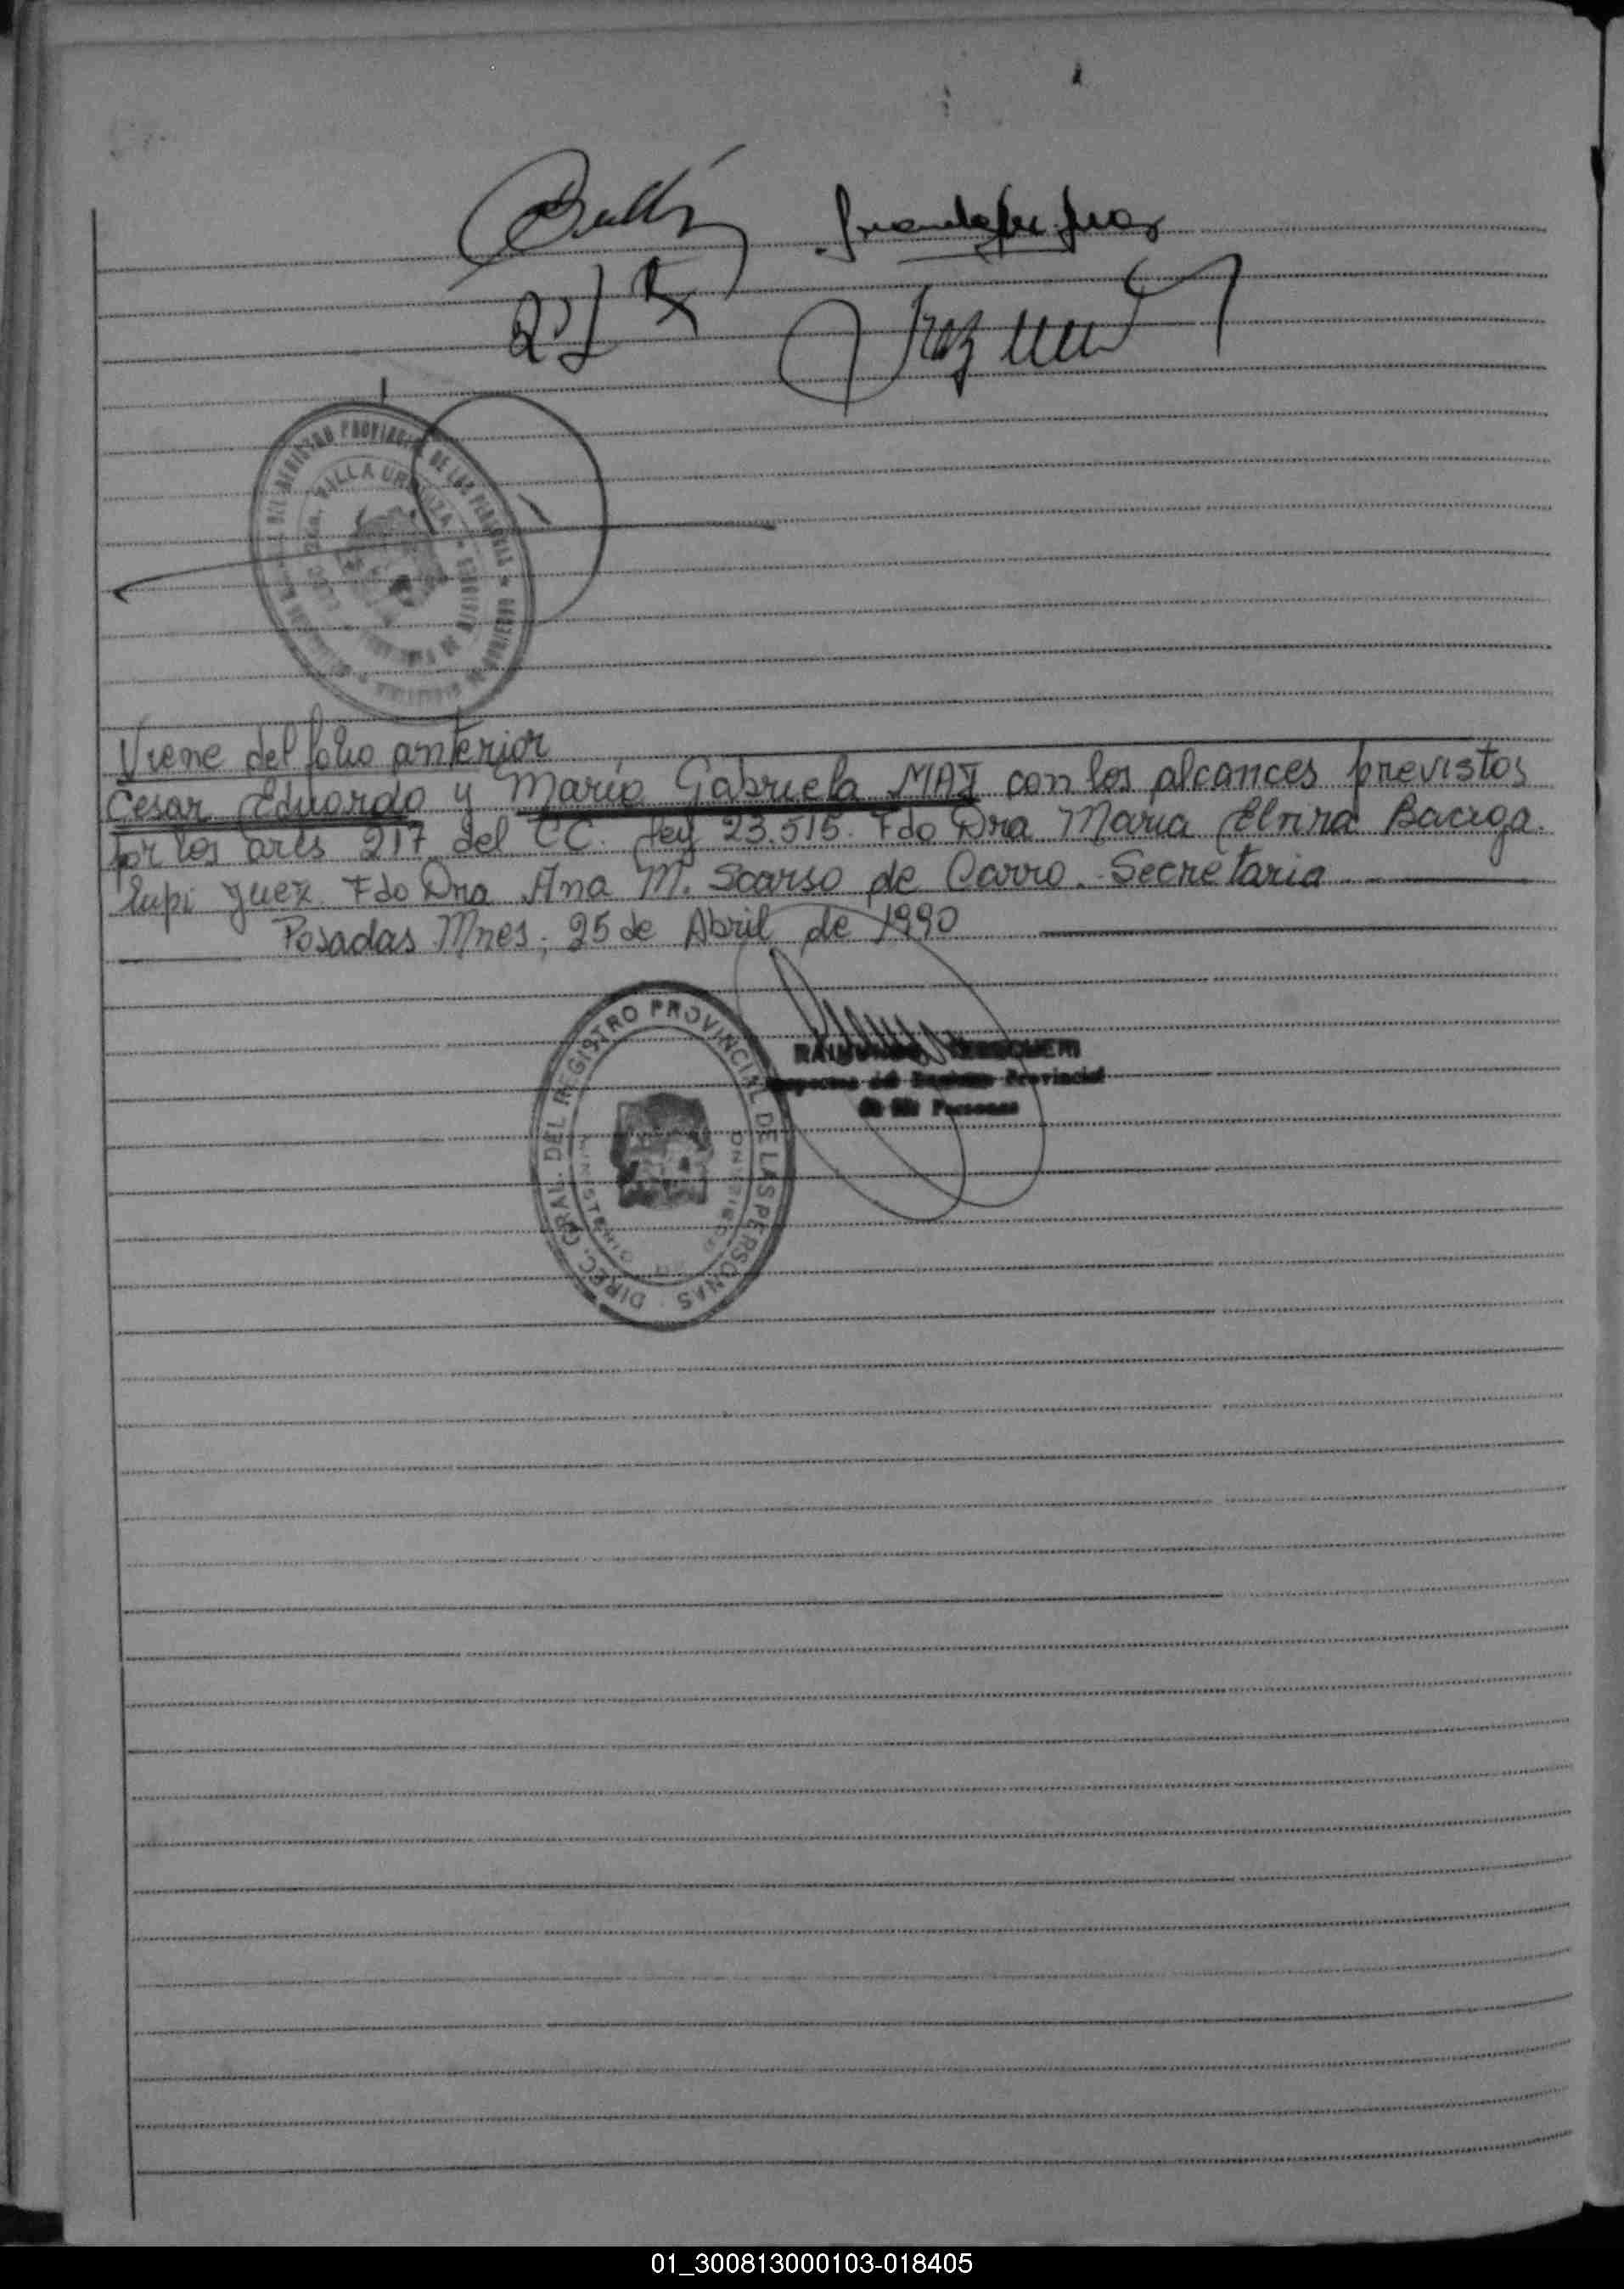 Viene del folio anterior
Cesar Eduardo y Maria Gabriela MAI con los alcances previstos
por los arts 217 del CC. Ley 23.515. Fdo Dra Maria Elvira Baciga.
lupi Juez. Fdo Dra Ana M. Scarso de Carro. Secretaria
Posadas Mnes, 25 de Abril de 1990
DEL REGISTRO PROVINCIAL DE LAS PERSONAS
VILLA URQUIZA
DIREC. GRAL. DEL REGISTRO PROVINCIAL DE LAS PERSONAS
MINISTERIO DE GOBIERNO
Registro Provincial
de las Personas
01_300813000103-018405